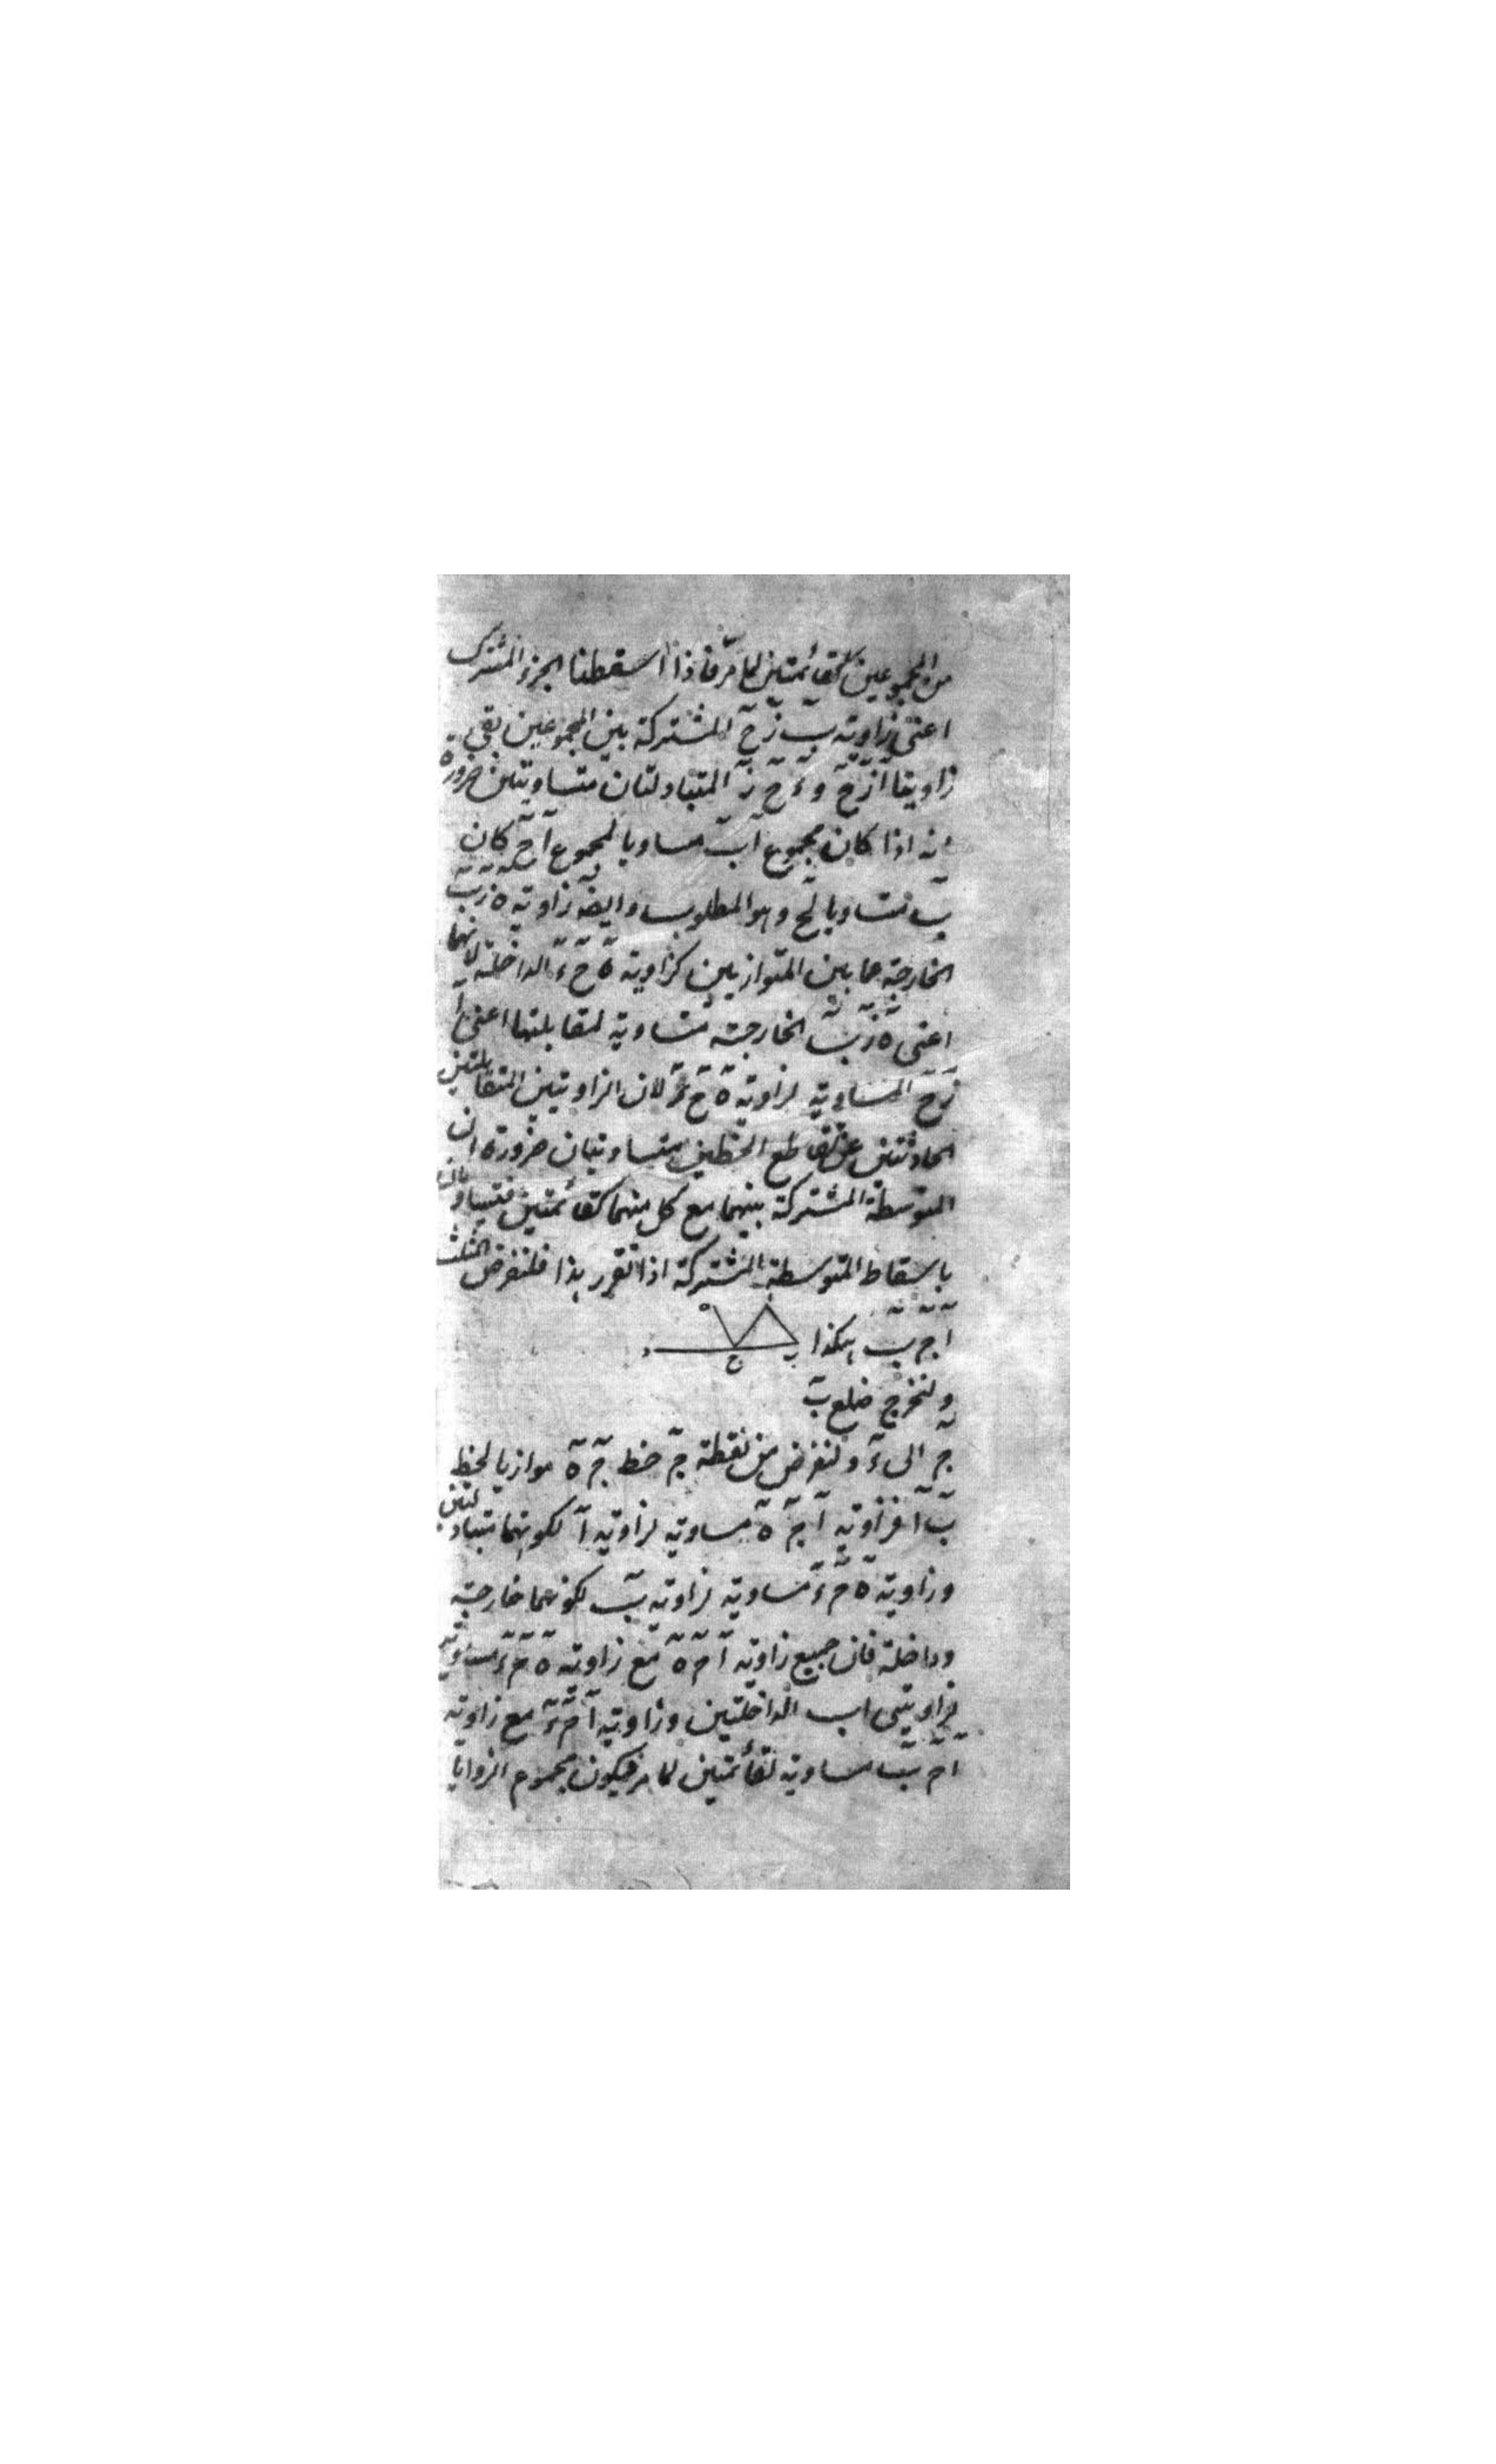 من المجموعين كقائمتين لما مر فاذا اسقطنا الجزء المشترك
اعنى زاوية ب ز ح المشتركة بين المجموعين بقى
زاويتا ا ز ح و ء ح ز المتبادلتان متساويتين ضرورة
انه اذا كان مجموع اب مساويا لمجموع ا ح كان
ب مساويا لح وهو المطلوب وايضا زاوية ه ز ب
الخارجة عما بين المتوازيين كزاوية ه ح ء الداخلة لانهما
اعنى ه ز ب الخارجة مساوية لمقابلتها اعنى ا
ز ح المساوية لزاوية ه ح ء لان الزاويتين المتقابلتين
الحادثتين عن تقاطع الخطين متساويتان ضرورة ان
المتوسطة المشتركة بينهما مع كل منهما كقائمتين فتساويان
باسقاط المتوسطة المشتركة اذا تقرر هذا فلنفرض المثلث
ا ج ب هكذا
ه
ب
ج
ء
ولنخرج ضلع ب
ج الى ء ولنفرض من نقطة ج خط ج ه موازيا لخط
ب ا فزاوية ا ج ه مساوية لزاوية ا لكونهما متبادلتين
وزاوية ه ج ء مساوية لزاوية ب لكونهما خارجة
وداخلة فان جميع زاوية ا ج ه مع زاوية ه ج ء مساوية
لزاويتى اب الداخلتين وزاوية ا ج ء مع زاوية
ا ج ب مساوية لقائمتين لما مر فيكون مجموع الزوايا